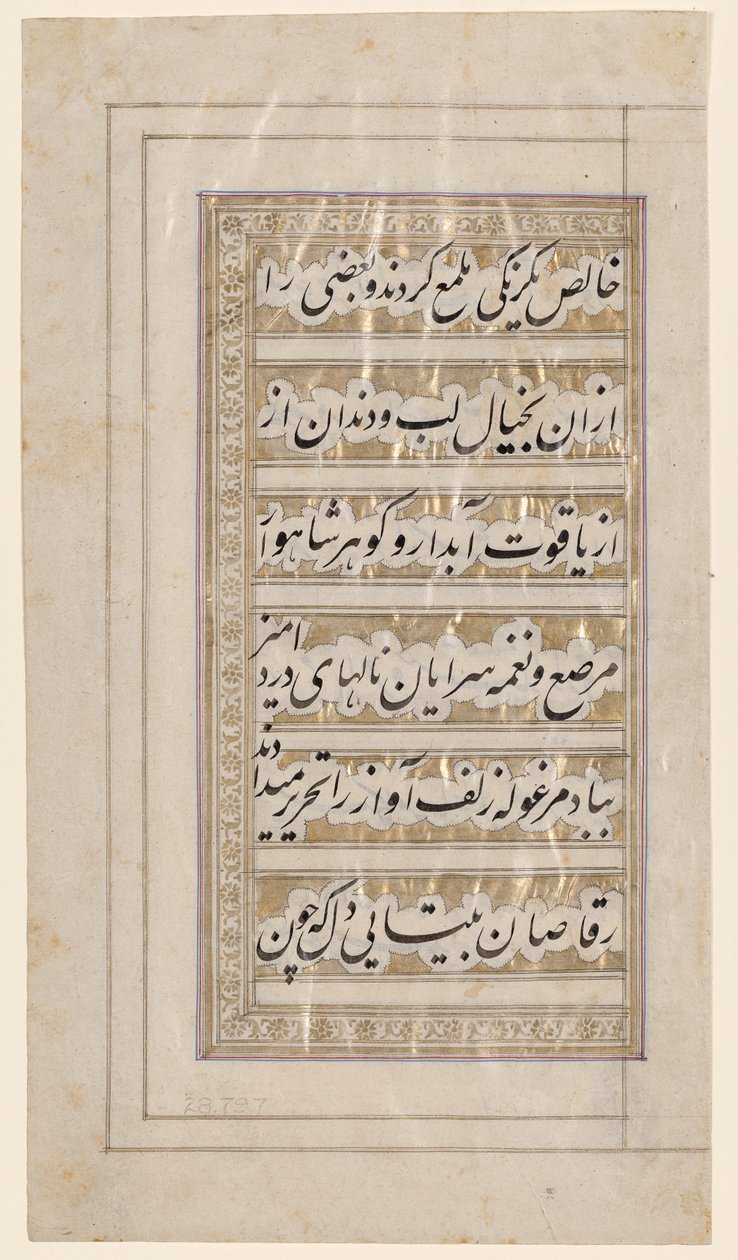 خالص یکرنگی ملمع کردند و بعضی را
ازان بخیال لب و دندان از
از یاقوت آبدار و کوهر شاهوار
مرصع و نغمه سرایان نالهای درد امیز
بیاد مرغوله زلف آواز را تحریر میدادند
رقاصان به بیتابی دل که چون
28.797